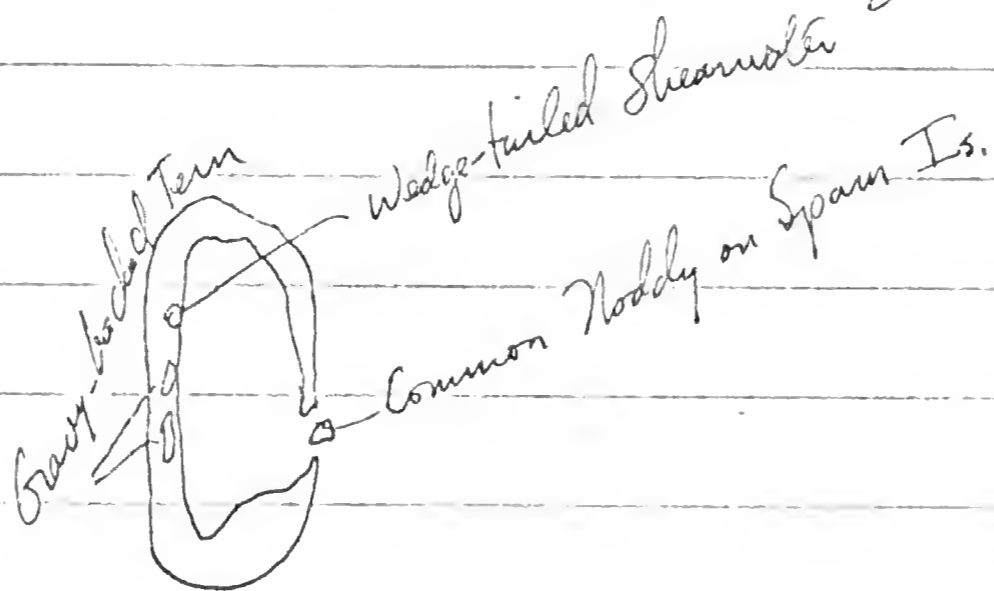 Gray-backed Tern
Wedge-tailed Shearwater
Common Noddy on Sparn Is.